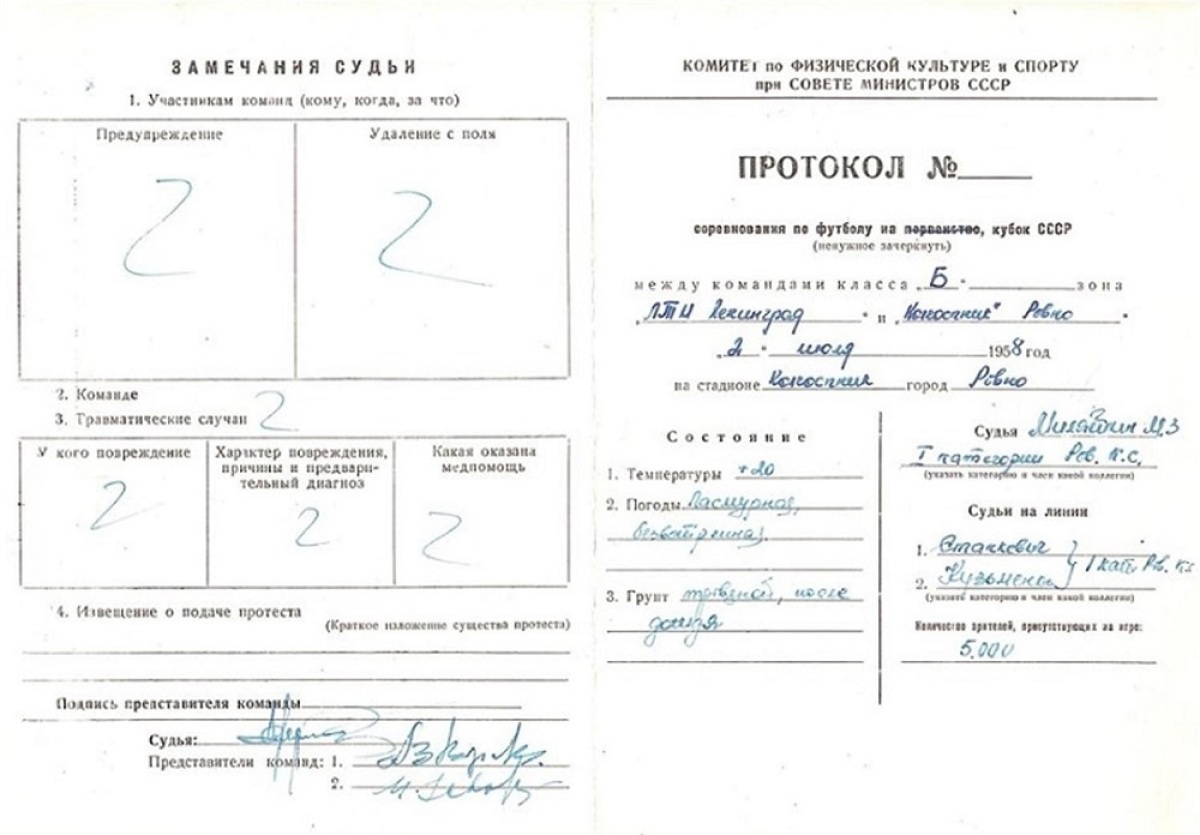 ЗАМЕЧАНИЯ СУДЬИ
1. Участникам команд (кому, когда, за что)
Предупреждение
Удаление с поля
2. Команде
3. Травматические случаи
У кого повреждение
Характер повреждения, причины и предвари-
тельный диагноз
Какая оказана медпомощь
4. Извещение о подаче протеста
(Краткое изложение существа протеста)
Подпись представителя команды
Судья:
Представители команд: 1.
2.
КОМИТЕТ по ФИЗИЧЕСКОЙ КУЛЬТУРЕ и СПОРТУ
при СОВЕТЕ МИНИСТРОВ СССР
ПРОТОКОЛ №
соревнования по футболу на первенство, кубок СССР
(ненужное зачеркнуть)
между командами класса „Б" зона
„ Ленинград " и „Колхозник" Ровно "
„2" июля 1958 год
на стадионе Колхозник город Ровно
Состояние
1. Температуры +20
2. Погоды Пасмурная,
безветренная
3. Грунт травяной, после
дождя
Судья М.З
I категории Ров. К.С.
(указать категорию и член какой коллегии)
Судьи на линии
1. Станкевич
2. Кузьменко } I кат. Ров. КС
(указать категорию и член какой коллегии)
Количество зрителей, присутствующих на игре:
5.000